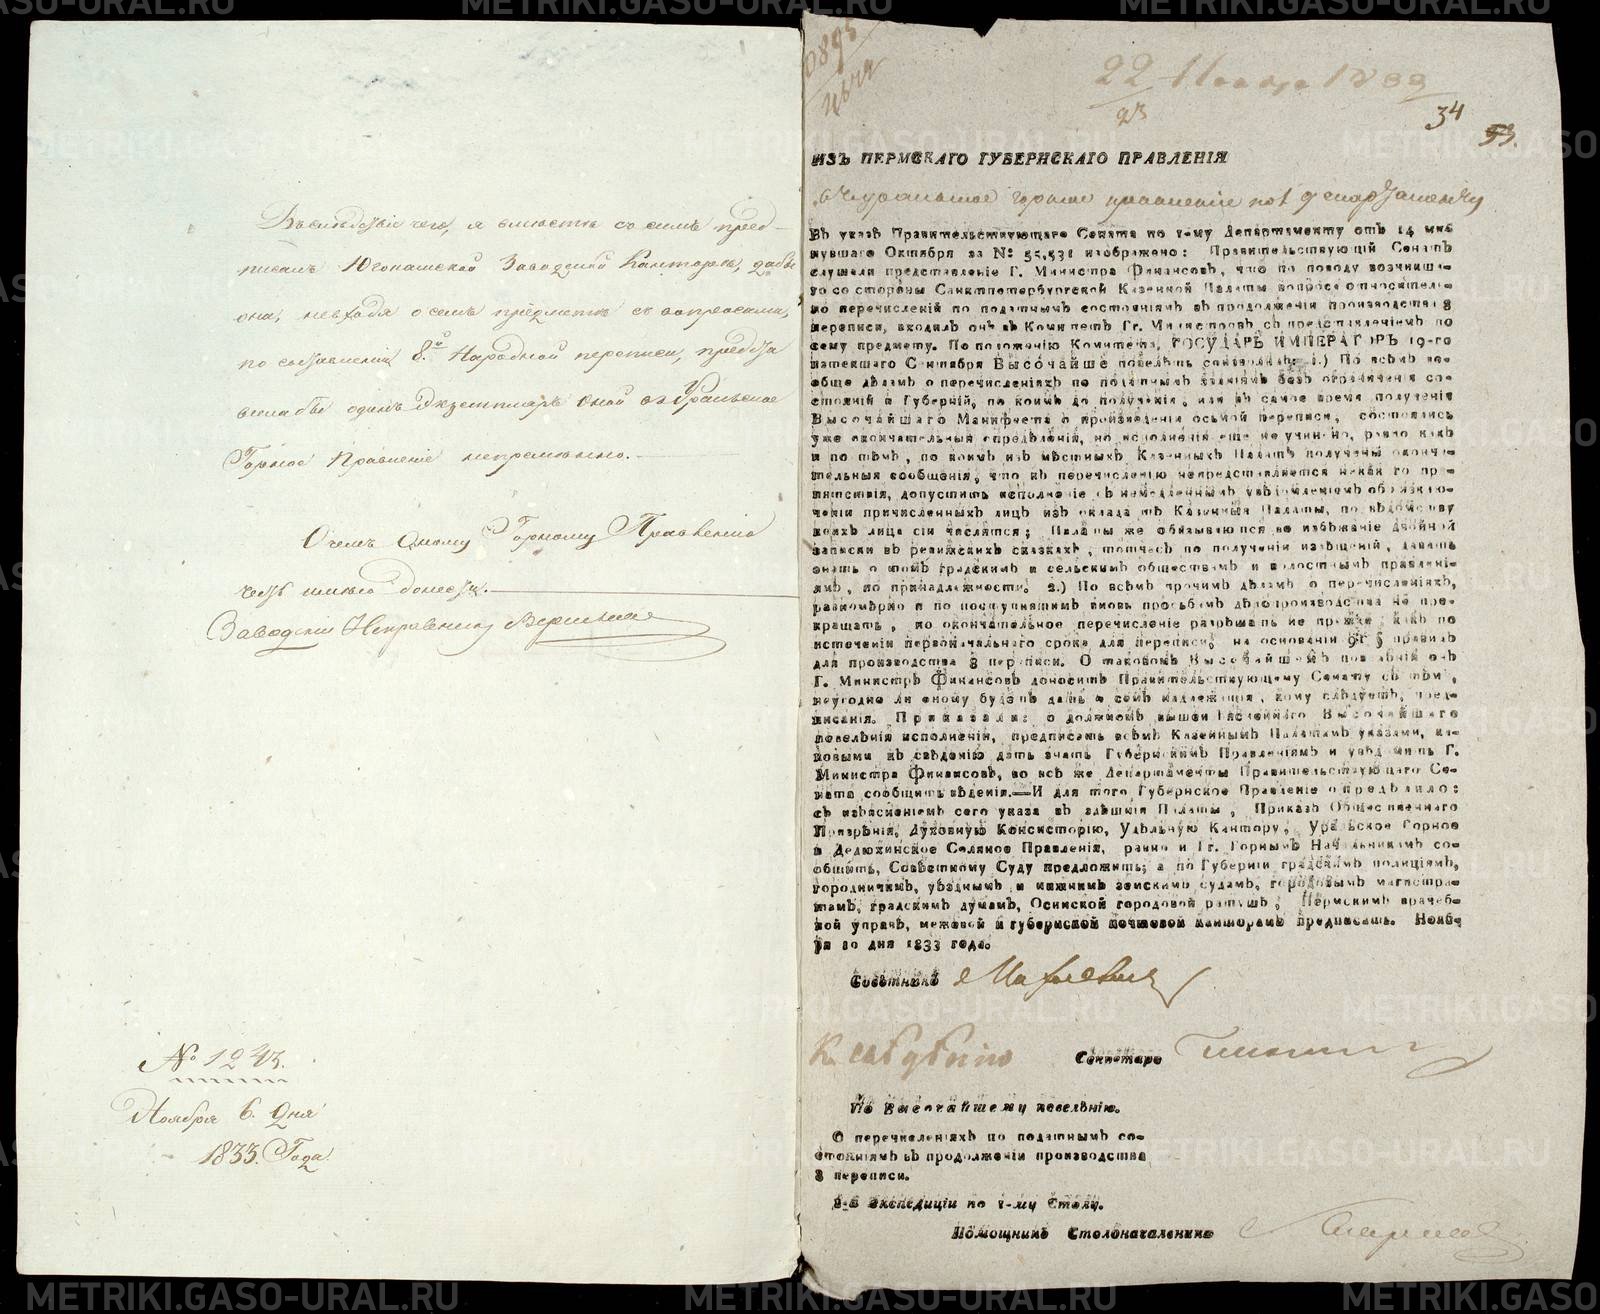 Въ слѣдствіе чего, я вмѣстѣ съ симъ пред-
писалъ Югокамской Заводской Канторѣ, дабы
она, невходя о семъ предметѣ съ вопросами,
по составленіи 8.й Народной переписи, предста
вила бы одинъ Экземпляръ оной въ Уральское
Горное Правленіе непремѣнно.
О чемъ Оному Горному Правленію
честь имѣю донести.
Заводскій Исправникъ
№ 1243.
Ноября 6. Дня
1833. Года.
22 Ноября 1833
23
34
53.
ИЗЪ ПЕРМСКАГО ГУБЕРНСКАГО ПРАВЛЕНІЯ
въ Уральское горное правленіе по 1 департаменту
Въ указѣ Правительствующаго Сената по 1-му Департаменту отъ 14 ми-
нувшаго Октября за № 55,531 изображено: Правительствующій Сенатъ
слушали представленіе Г. Министра Финансовъ, что по поводу возникша-
го со стороны Санктпетербургской Казенной Палаты вопроса относитель-
но перечисленій по податнымъ состояніямъ въ продолженіи производства 8
переписи, входилъ онъ въ Комитетъ Гг. Министровъ съ представленіемъ по
сему предмету. По положенію Комитета, ГОСУДАРЬ ИМПЕРАТОРЪ 19-го
истекшаго Сентября Высочайше повелѣть соизволилъ: 1.) По всѣмъ во-
обще дѣламъ о перечисленіяхъ по податнымъ званіямъ безъ ограниченія со-
стояній и Губерній, по коимъ до полученія, или въ самое время полученія
Высочайшаго Манифеста о произведеніи осьмой переписи, состоялись
уже окончательныя опредѣленія, но исполненія еще не учинено, равно какъ
и по тѣмъ, по коимъ изъ мѣстныхъ Казенныхъ Палатъ получены оконча-
тельныя сообщенія, что къ перечисленію непредставляется никакого пре-
пятствія, допустить исполненіе съ немедленнымъ увѣдомленіемъ объ исклю-
ченіи причисленныхъ лицъ изъ оклада тѣ Казенныя Палаты, по вѣдомству
коихъ лица сіи числятся; Палаты же обязываются во избѣжаніе двойной
записки въ ревижскихъ сказкахъ, тотчасъ по полученіи извѣщеній, давать
знать о томъ градскимъ и сельскимъ обществамъ и волостнымъ правлені-
ямъ, по принадлежности; 2.) По всѣмъ прочимъ дѣламъ о перечисленіяхъ,
равномѣрно и по поступившимъ вновь просьбамъ дѣлопроизводства не пре-
кращать, но окончательное перечисленіе разрѣшать не прежде, какъ по
истеченіи первоначальнаго срока для переписи, на основаніи 91 § правилъ
для производства 8 переписи. О таковомъ Высочайшемъ повелѣніи онъ
Г. Министръ Финансовъ доноситъ Правительствующему Сенату съ тѣмъ,
неугодно ли оному будетъ дать о семъ надлежащія, кому слѣдуетъ, пред-
писанія. Приказали: о должномъ вышеизъясненнаго Высочайшаго
повелѣнія исполненіи, предписать всѣмъ Казеннымъ Палатамъ указами, ка-
ковыми къ свѣденію дать знать Губернскимъ Правленіямъ и увѣдомить Г.
Министра Финансовъ, во всѣ же Департаменты Правительствующаго Се-
ната сообщить вѣденія.—И для того Губернское Правленіе опредѣлило:
съ изъясненіемъ сего указа въ здѣшнія Палаты, Приказъ Общественнаго
Призрѣнія, Духовную Консисторію, Удѣльную Кантору, Уральское Горное
и Дедюхинское Соляное Правленія, равно и Гг. Горнымъ Начальникамъ со-
общить, Совѣстному Суду предложить; а по Губерніи градскимъ полиціямъ,
городничимъ, уѣзднымъ и нижнимъ земскимъ судамъ, городовымъ магистра-
тамъ, градскимъ думамъ, Осинской городовой ратушѣ, Пермскимъ врачеб-
ной управѣ, межевой и губернской почтовой канторамъ предписать. Нояб-
ря 20 дня 1833 года.
Совѣтникъ
Секретарь
По Высочайшему повелѣнію.
О перечисленіяхъ по податнымъ со-
стояніямъ въ продолженіи производства
8 переписи.
2-й Экспедиціи по 1-му Столу.
Помощникъ Столоначальника